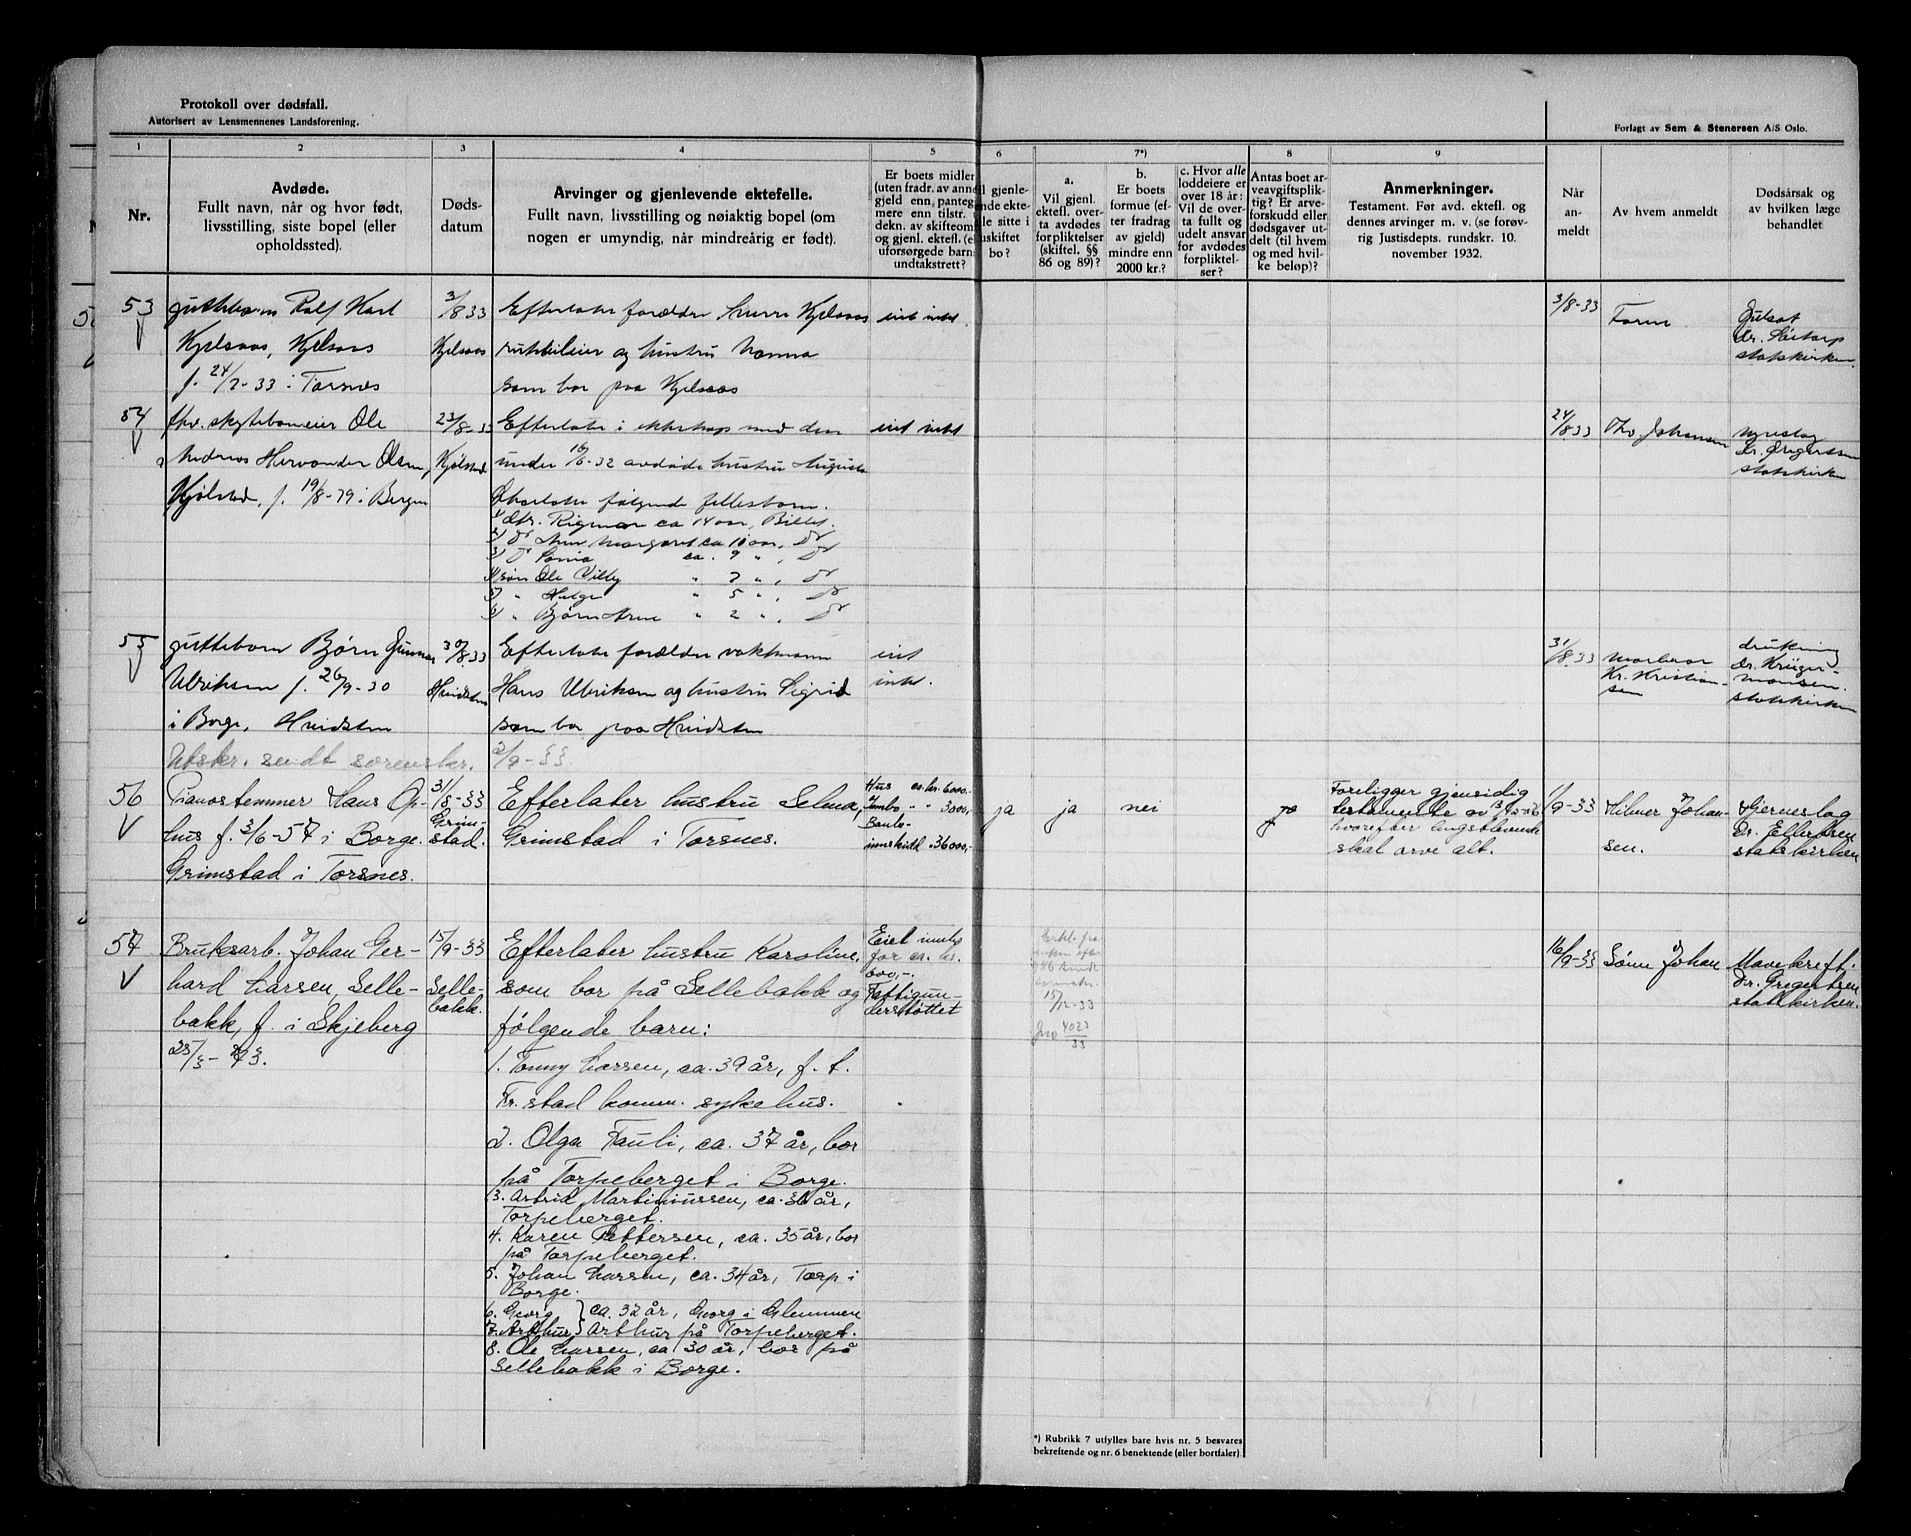 Protokoll over dødsfall.
Autorisert av Lensmennenes Landsforening.
Forlagt av Sem & Stenersen A/S Oslo.
1 2 3 4 5 6 7*) 8 9
Nr.
Avdøde.
Fullt navn, når og hvor født,
livsstilling, siste bopel (eller
opholdssted).
Døds-
datum
Arvinger og gjenlevende ektefelle.
Fullt navn, livsstilling og nøiaktig bopel (om
nogen er umyndig, når mindreårig er født).
Er boets midler
(uten fradr. av anne
gjeld enn panteg
mere enn tilstr.
dekn. av skifteom
og gjenl. ektefl. (e
uforsørgede barn
undtakstrett?
l gjenle-
nde ekte-
lle sitte i
uskiftet
bo?
a.
Vil gjenl.
ektefl. over-
ta avdødes
forpliktelser
(skiftel. §§
86 og 89)?
b.
Er boets
formue (ef-
ter fradrag
av gjeld)
mindre enn
2000 kr.?
c. Hvor alle
loddeiere er
over 18 år:
Vil de over-
ta fullt og
udelt ansvar
for avdødes
forpliktel-
ser?
Antas boet ar-
veavgiftsplik-
tig? Er arve-
forskudd eller
dødsgaver ut-
delt (til hvem
og med hvil-
ke beløp)?
Anmerkninger.
Testament. Før avd. ektefl. og
dennes arvinger m. v. (se forøv-
rig Justisdepts. rundskr. 10.
november 1932.
Når
an-
meldt
Av hvem anmeldt
Dødsårsak og
av hvilken læge
behandlet
53
guttebarn Rolf Karl
Kjølsaas, Kjølsaas
f. 24/7-33 i Torsnes
3/8 33
Efterlater forældre
og hustru Hanna
som bor paa
int intet.
3/8-33
Faren
dr.
statskirken
54
fhv. skytebaneeier Ole
Andreas Olsen,
Kjølstad, f. 19/8-79 i Bergen
23/8-3
Kjølstad
Efterlater i ekteskap med den
under 16/6-32 avdøde hustru Augusta
følgende fellesbarn.
1) dtr. Rigmor ca 14 aar,
2) Margaret ca 10 aar,
3) ca. 9 ",
4) søn Ole Villy " 7 ",
5) " Helge " 5 ",
6) " Bjørn Arne " 2 ",
int intet
24/8 33
Thv. Johansen
dr.
statskirken
55
guttebarn Bjørn Gunnar
Ulriksen f. 26/9-30
i Borge, Hvidsten
30/8.33
Hvidsten
Efterlater forældre vaktmann
Hans Ulriksen og hustru Sigrid
som bor paa Hvidsten
int
intet.
31/8.33
Morbror
Kr. Kristian-
sen
drukning
dr. Krüger-
monsen.
statskirken
Utskr. sendt sorenskr. 2/9-33.
56
Pianostemmer Hans Op-
hus f. 3/6-57 i Borge.
Grimstad i Torsnes.
31/8-33
Grim-
stad.
Efterlater hustru Selma,
Grimstad i Torsnes.
Hus ca. kr. 6000,-
Innbo - " 3000,-
Bank-
innskudd " 36000,-
ja
ja
nei
ja
Foreligger gjensidig
testamente av
hvorefter lengstlevende
skal arve alt.
1/9-33
Hilmer Johan-
sen.
Hjerneslag
Dr. Ellertsen
statskirken
57
Bruksarb. Johan Ger-
hard Larsen, Selle-
bakk, f. i Skjeberg
25/3-73.
15/9-33
Selle-
bakk.
Efterlater hustru Karoline,
som bor på Sellebakk og
følgende barn:
1. Tonny Larsen, ca. 39 år, f. t.
Fr.stad komm. sykehus.
2. Olga Fauli, ca. 37 år, bor
på Torpeberget i Borge.
3. Astrid Martiniussen, ca. 36 år,
Torpeberget.
4. Karen Pettersen, ca. 35 år, bor
på Torpeberget.
5. Johan Larsen, ca. 34 år, Torp i
Borge.
6. Georg } ca. 32 år, Georg i Glemmen
7. Arthur } Arthur på Torpeberget.
8. Ole Larsen, ca 30 år, bor på
Sellebakk i Borge.
Eiet innbo
for ca. kr.
600,-.
Fattigun-
derstøttet
15/12-33
4023/33
16/9-33
Sønn Johan
Mavekreft.
Dr. Gregertsen
statskirken.
*) Rubrikk 7 utfylles bare hvis nr. 5 besvares
bekreftende og nr. 6 benektende (eller bortfaler).